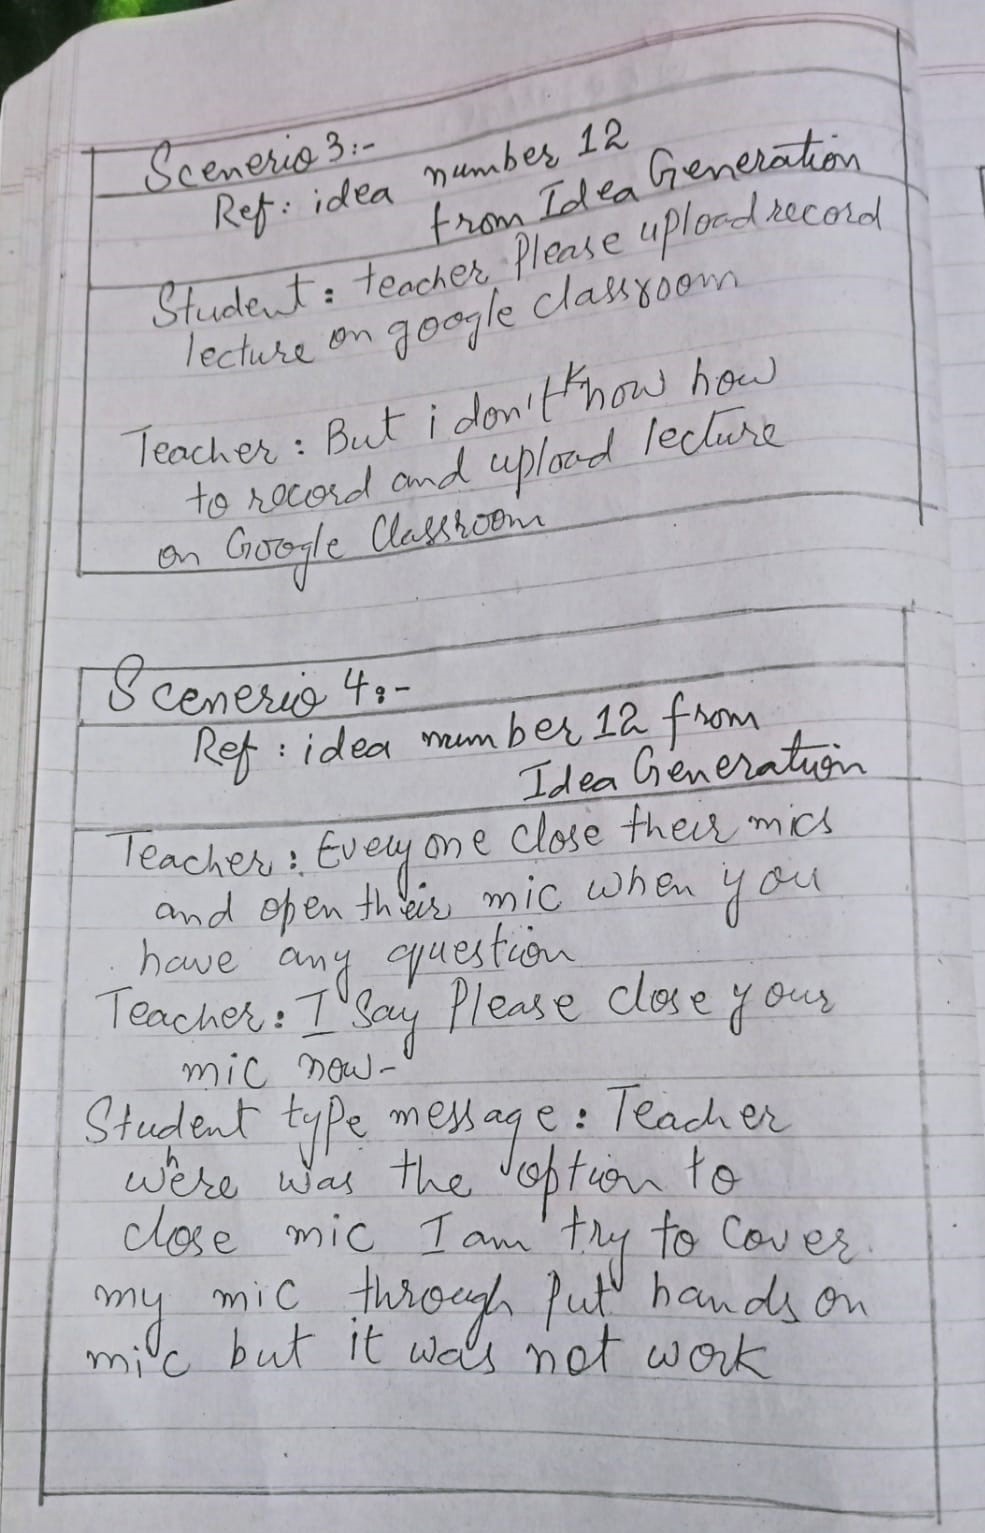 Scenerio 3:-
Ref: idea number 12
from Idea Generation
Student: teacher Please upload record
lecture on google classroom
Teacher: But i don't know how
to record and upload lecture
on Google Classroom
Scenerio 4:-
Ref: idea number 12 from
Idea Generation
Teacher: Everyone close their mics
and open their mic when you
have any question
Teacher: I Say Please close your
mic now-
Student type message: Teacher
where was the option to
close mic I am try to cover
my mic through Put hands on
mic but it was not work